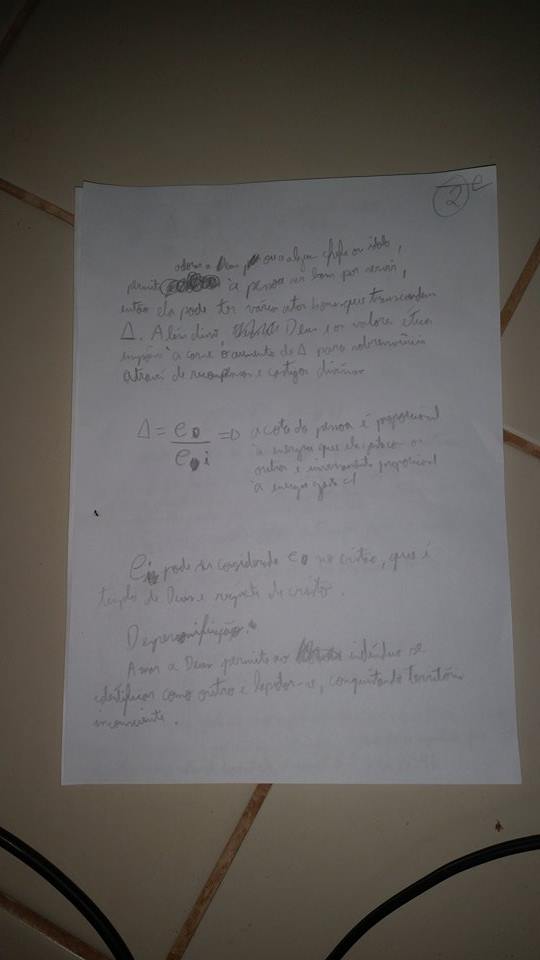 2 e
adorar a Deus ou a algum chefe ou ídolo,
permite a pessoa ser bom por servir,
então ela pode ter vários atos bons que transcendem
Δ. Além disso, Deus e os valores éticos
a carne o aumento de Δ para sobrevivência
através de recompensas e castigos divinos
Δ = e₀ / e₀i => a cota da pessoa é proporcional
à energia que ela gasta com os
outros e inversamente proporcional
à energia gasta c/
pode ser considerado e₀ no cristão, que é
templo de Deus e de cristo.
Despersonificação.
Amar a Deus permite ao indivíduo se
identificar como outro e, conquistando território
inconsciente.